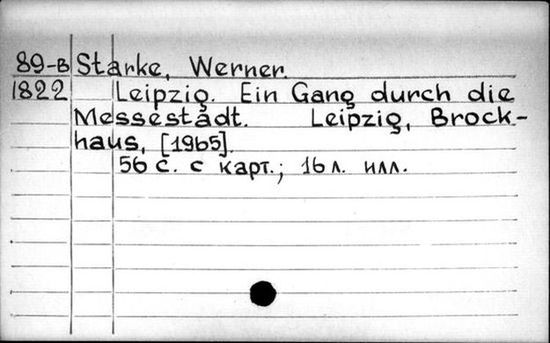 89-в Starke, Werner.
1822 Leipzig. Ein Gang durch die
Messestadt. Leipzig, Brock-
haus, [1965].
56 с. с карт.; 16 л. илл.